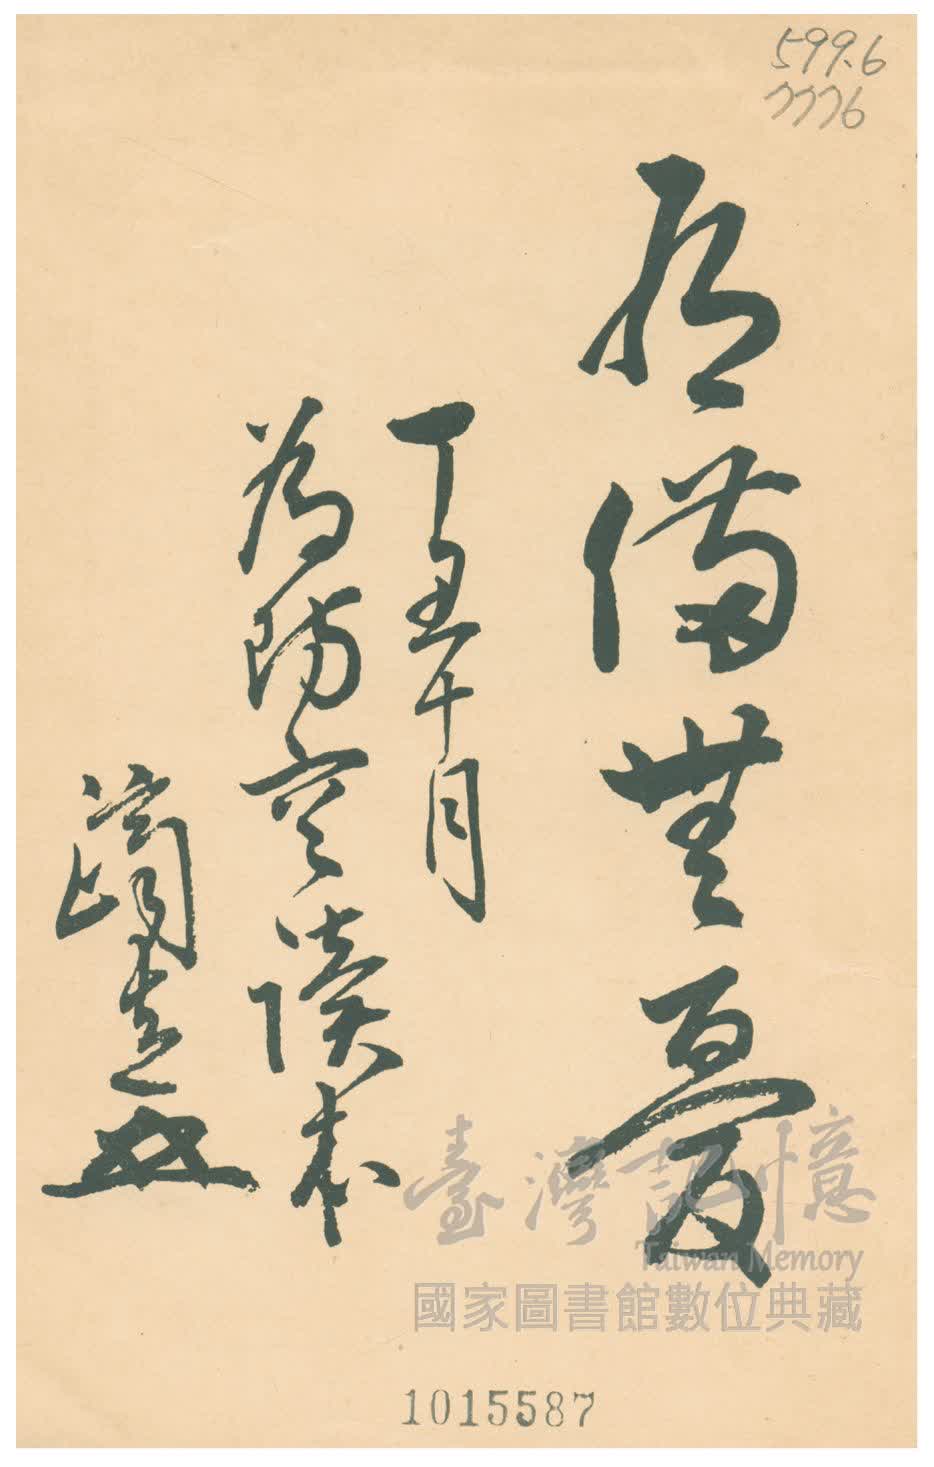 599.6
7776
有備無憂
丁丑十月
為防空讀本
臺灣記憶
Taiwan Memory
國家圖書館數位典藏
1015587